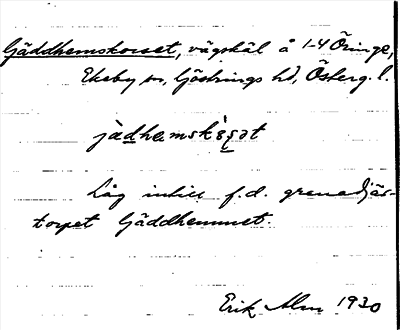 Gäddhemskorset, vägskäl å 1-4 Öringe,
Ekeby sn, Göstrings hd, Österg. l.
jàdhemskɔ̀ṣət
Låg intill f.d. grenadjär-
torpet Gäddhemmet.
Erik Alm 1930